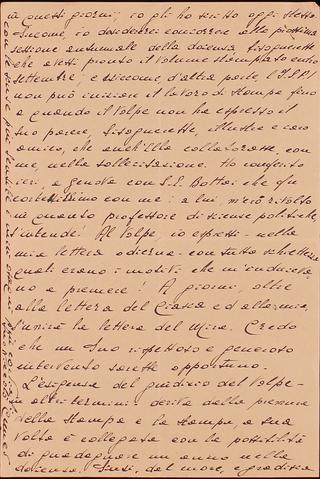 in questi giorni; io gli ho scritto oggi stesso.
Siccome, io desidererei concorrere alla prossima
sessione autunnale della docenza, bisognerebbe
che avessi pronto il volume stampato entro
settembre; e siccome d'altra parte, l'I.S.P.I.
non può iniziare il lavoro di stampa fino
a quando il Volpe non ha espresso il
suo parere, bisognerebbe, illustre e caro
amico, che anch'Ella collaborasse, con
me, nella sollecitazione. Ho conferito
ieri, a Genova con S.E. Bottai che fu
cortesissimo con me: a lui, m'ero rivolto
in quanto professore di scienze politiche,
s'intende! Al Volpe, io espressi - nella
mia lettera odierna - con tutta schiettezza
quali erano i motivi che m'inducevano
a premere! A giorni, oltre
alla lettera del e alla mia,
s'unirà la lettera del Mira. Credo
che un Suo rispettoso e generoso
intervento sarebbe opportuno.
L'esigenza del giudizio del Volpe -
in altri termini deriva dalla premura
della stampa e la stampa, a sua
volta è collegata con la possibilità
di guadagnare un anno nella
docenza. Scusi, del more, e gradisca